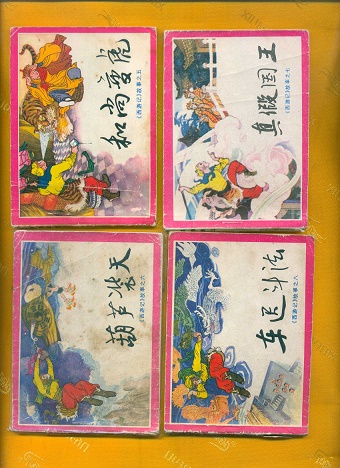 和尚变虎
《西游记》故事之五
真假国王
《西游记》故事之七
葫芦装天
《西游记》故事之六
车迟斗法
《西游记》故事之八